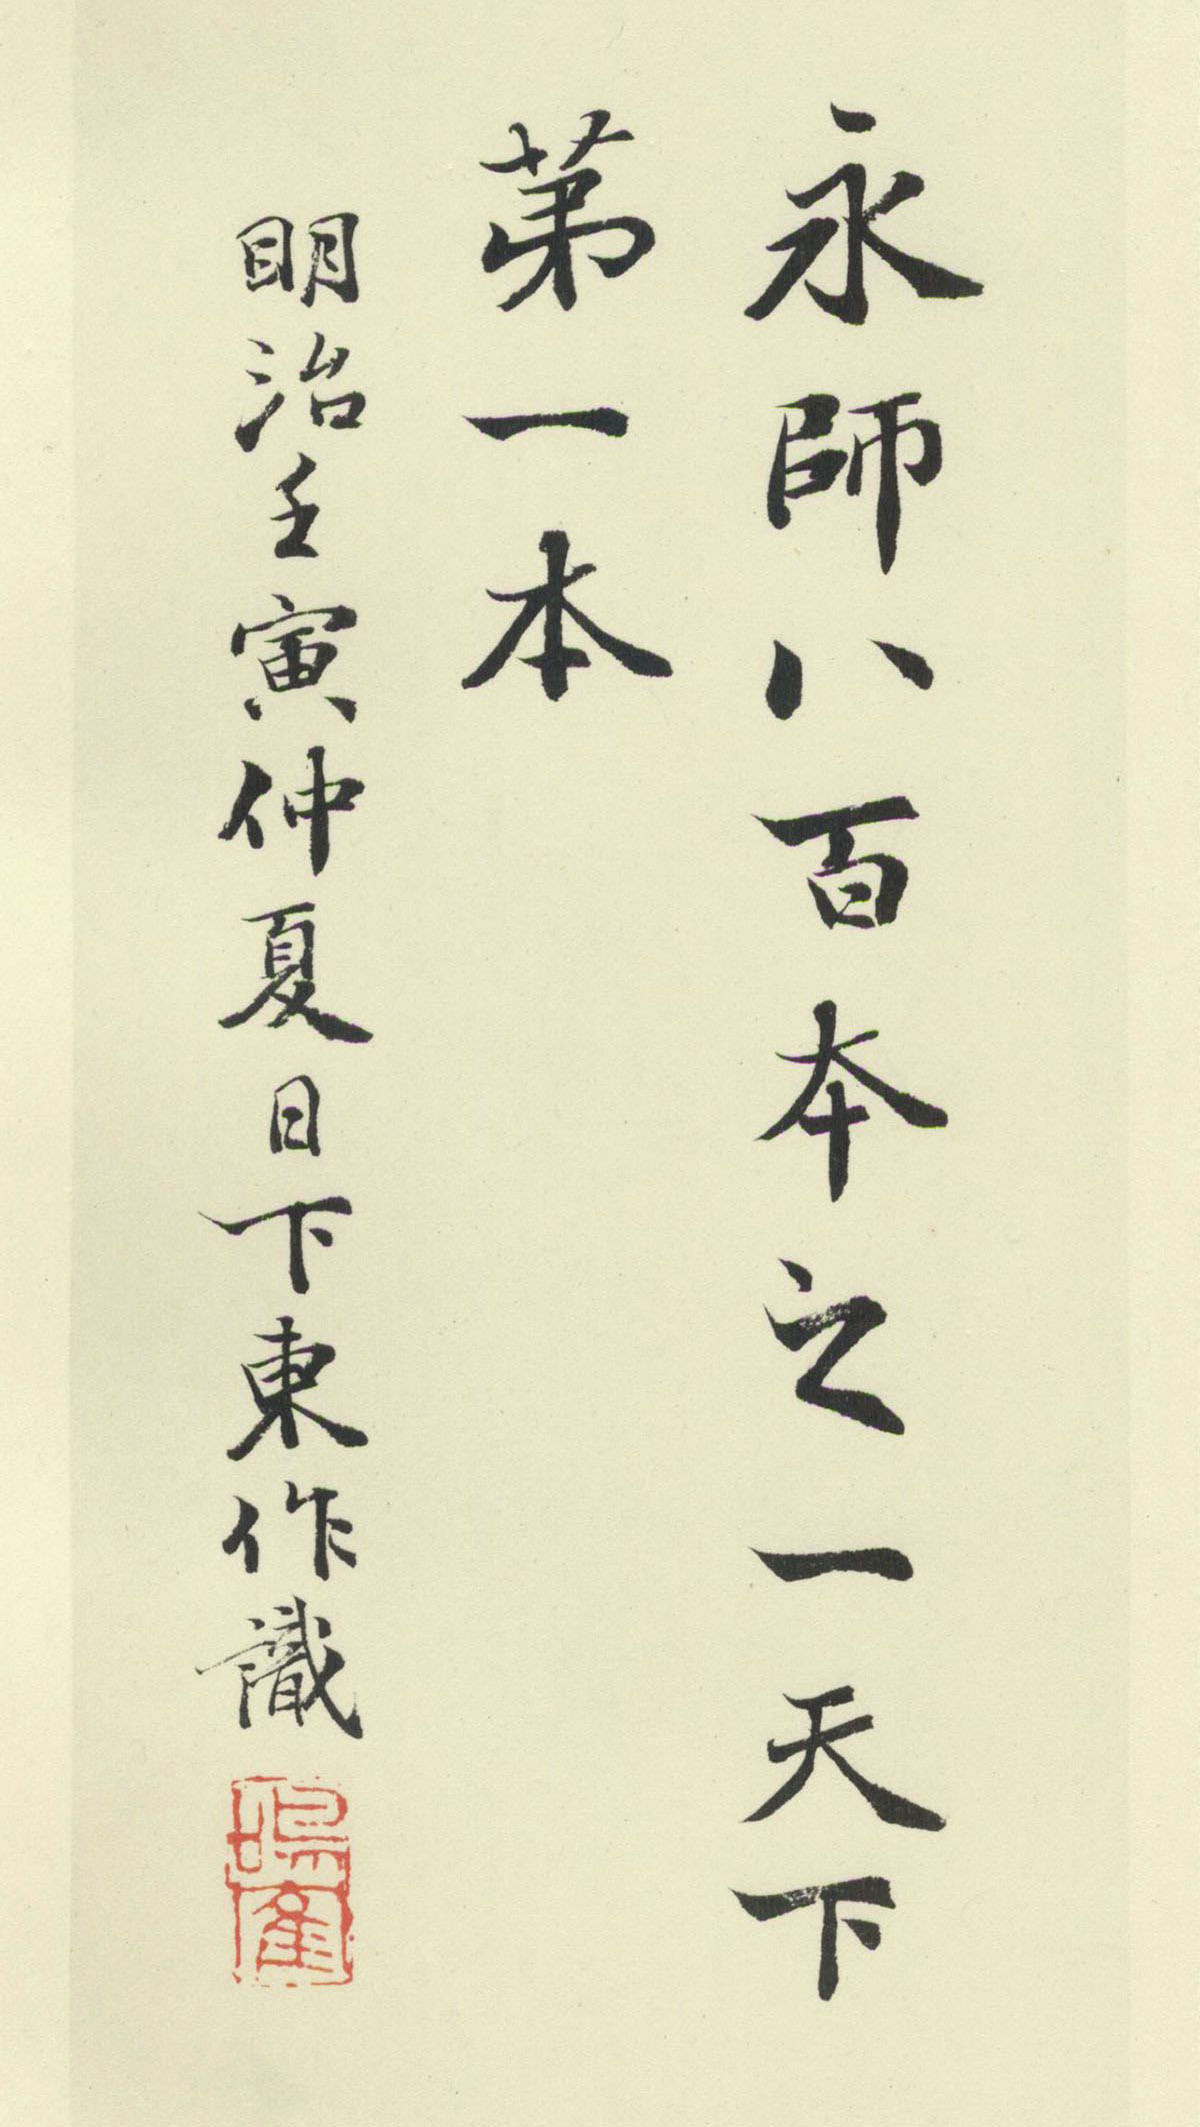 永師八百本之一天下
第一本
明治壬寅仲夏日下東作識
鳴鶴